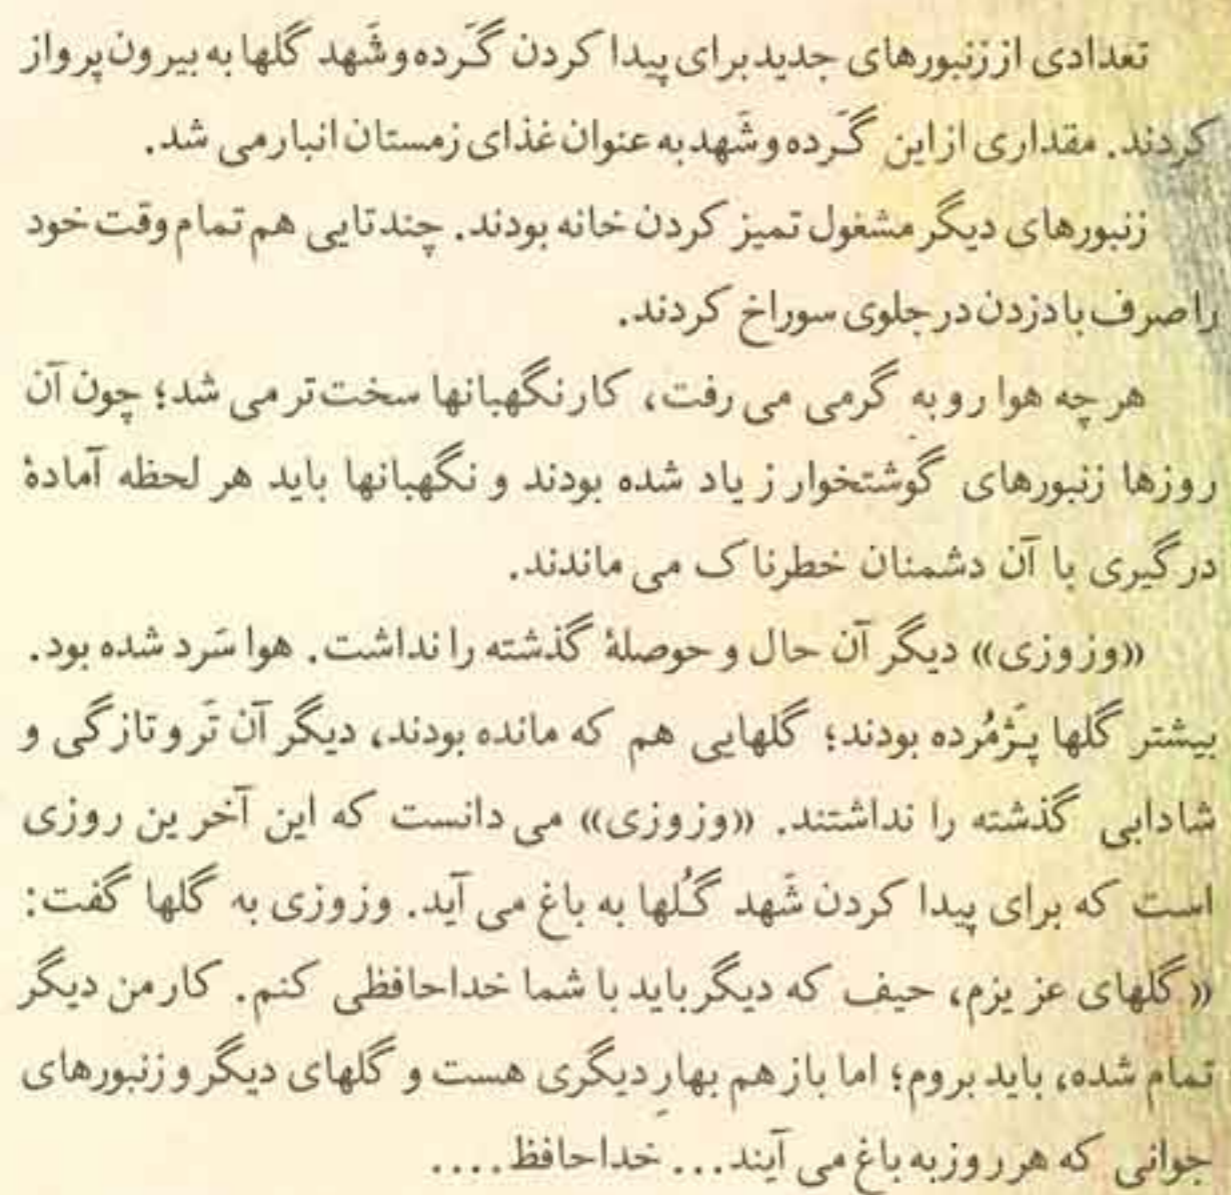 تعدادی از زنبورهای جدید برای پیدا کردن گَرده و شَهد گلها به بیرون پرواز
کردند. مقداری از این گَرده و شَهد به عنوان غذای زمستان انبار می شد.
زنبورهای دیگر مشغول تمیز کردن خانه بودند. چندتایی هم تمام وقت خود
را صرف بادزدن در جلوی سوراخ کردند.
هر چه هوا رو به گرمی می رفت، کار نگهبانها سخت تر می شد؛ چون آن
روزها زنبورهای گوشتخوار زیاد شده بودند و نگهبانها باید هر لحظه آمادهٔ
درگیری با آن دشمنان خطرناک می ماندند.
«وزوزی» دیگر آن حال و حوصلهٔ گذشته را نداشت. هوا سَرد شده بود.
بیشتر گلها پَژمُرده بودند؛ گلهایی هم که مانده بودند، دیگر آن تَر و تازگی و
شادابی گذشته را نداشتند. «وزوزی» می دانست که این آخرین روزی
است که برای پیدا کردن شَهد گُلها به باغ می آید. وزوزی به گلها گفت:
«گلهای عزیزم، حیف که دیگر باید با شما خداحافظی کنم. کار من دیگر
تمام شده، باید بروم؛ اما باز هم بهارِ دیگری هست و گلهای دیگر و زنبورهای
جوانی که هر روز به باغ می آیند... خداحافظ....